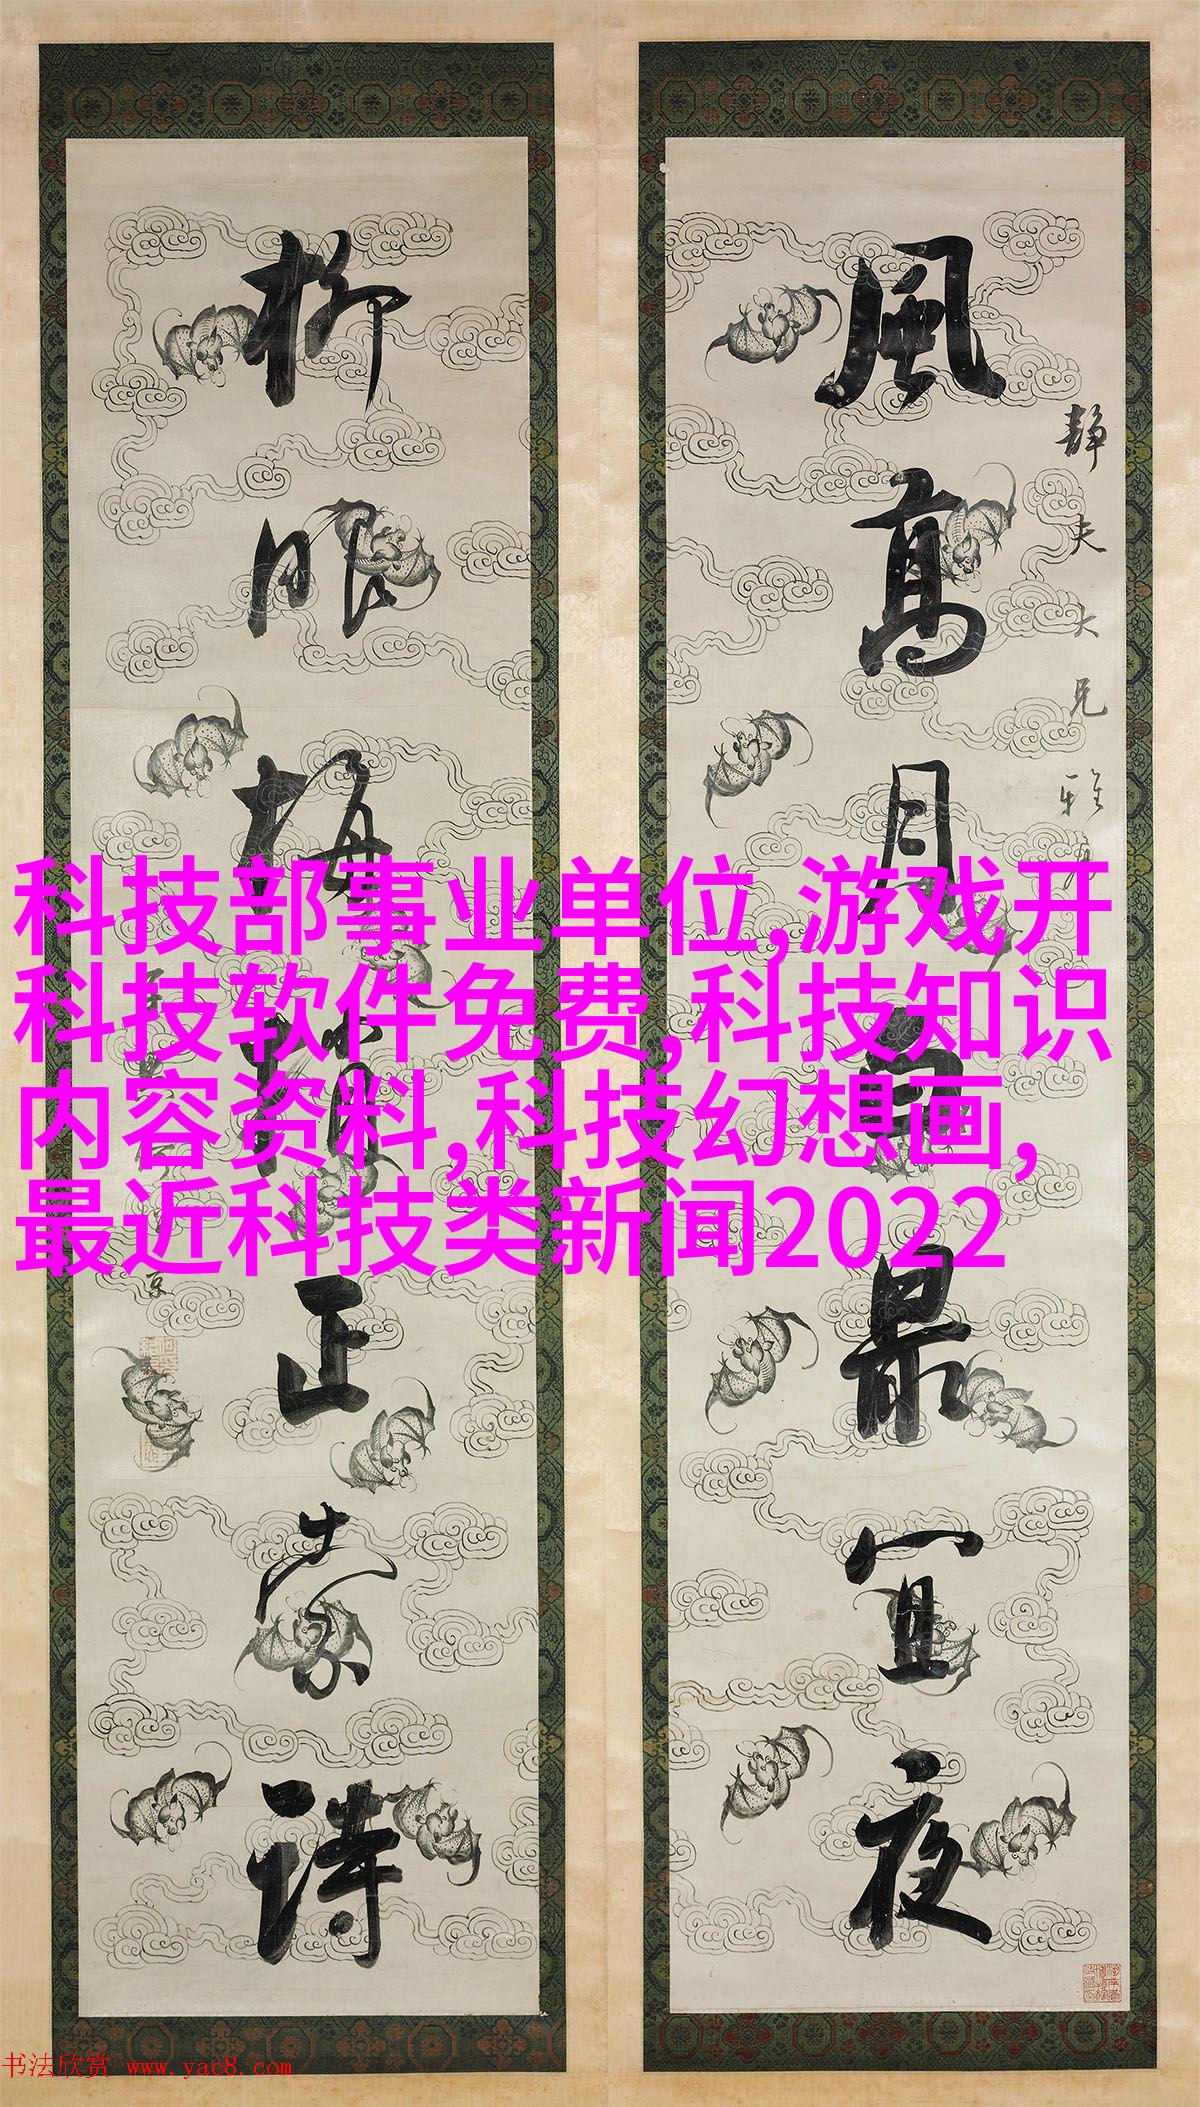 静夫大兄雅
風高月最宜夜
柳眼梅正索詩
科技部事业单位,游戏开
科技软件免费,科技知识
内容资料,科技幻想画,
最近科技类新闻2022
书法欣赏 www.yac8.com